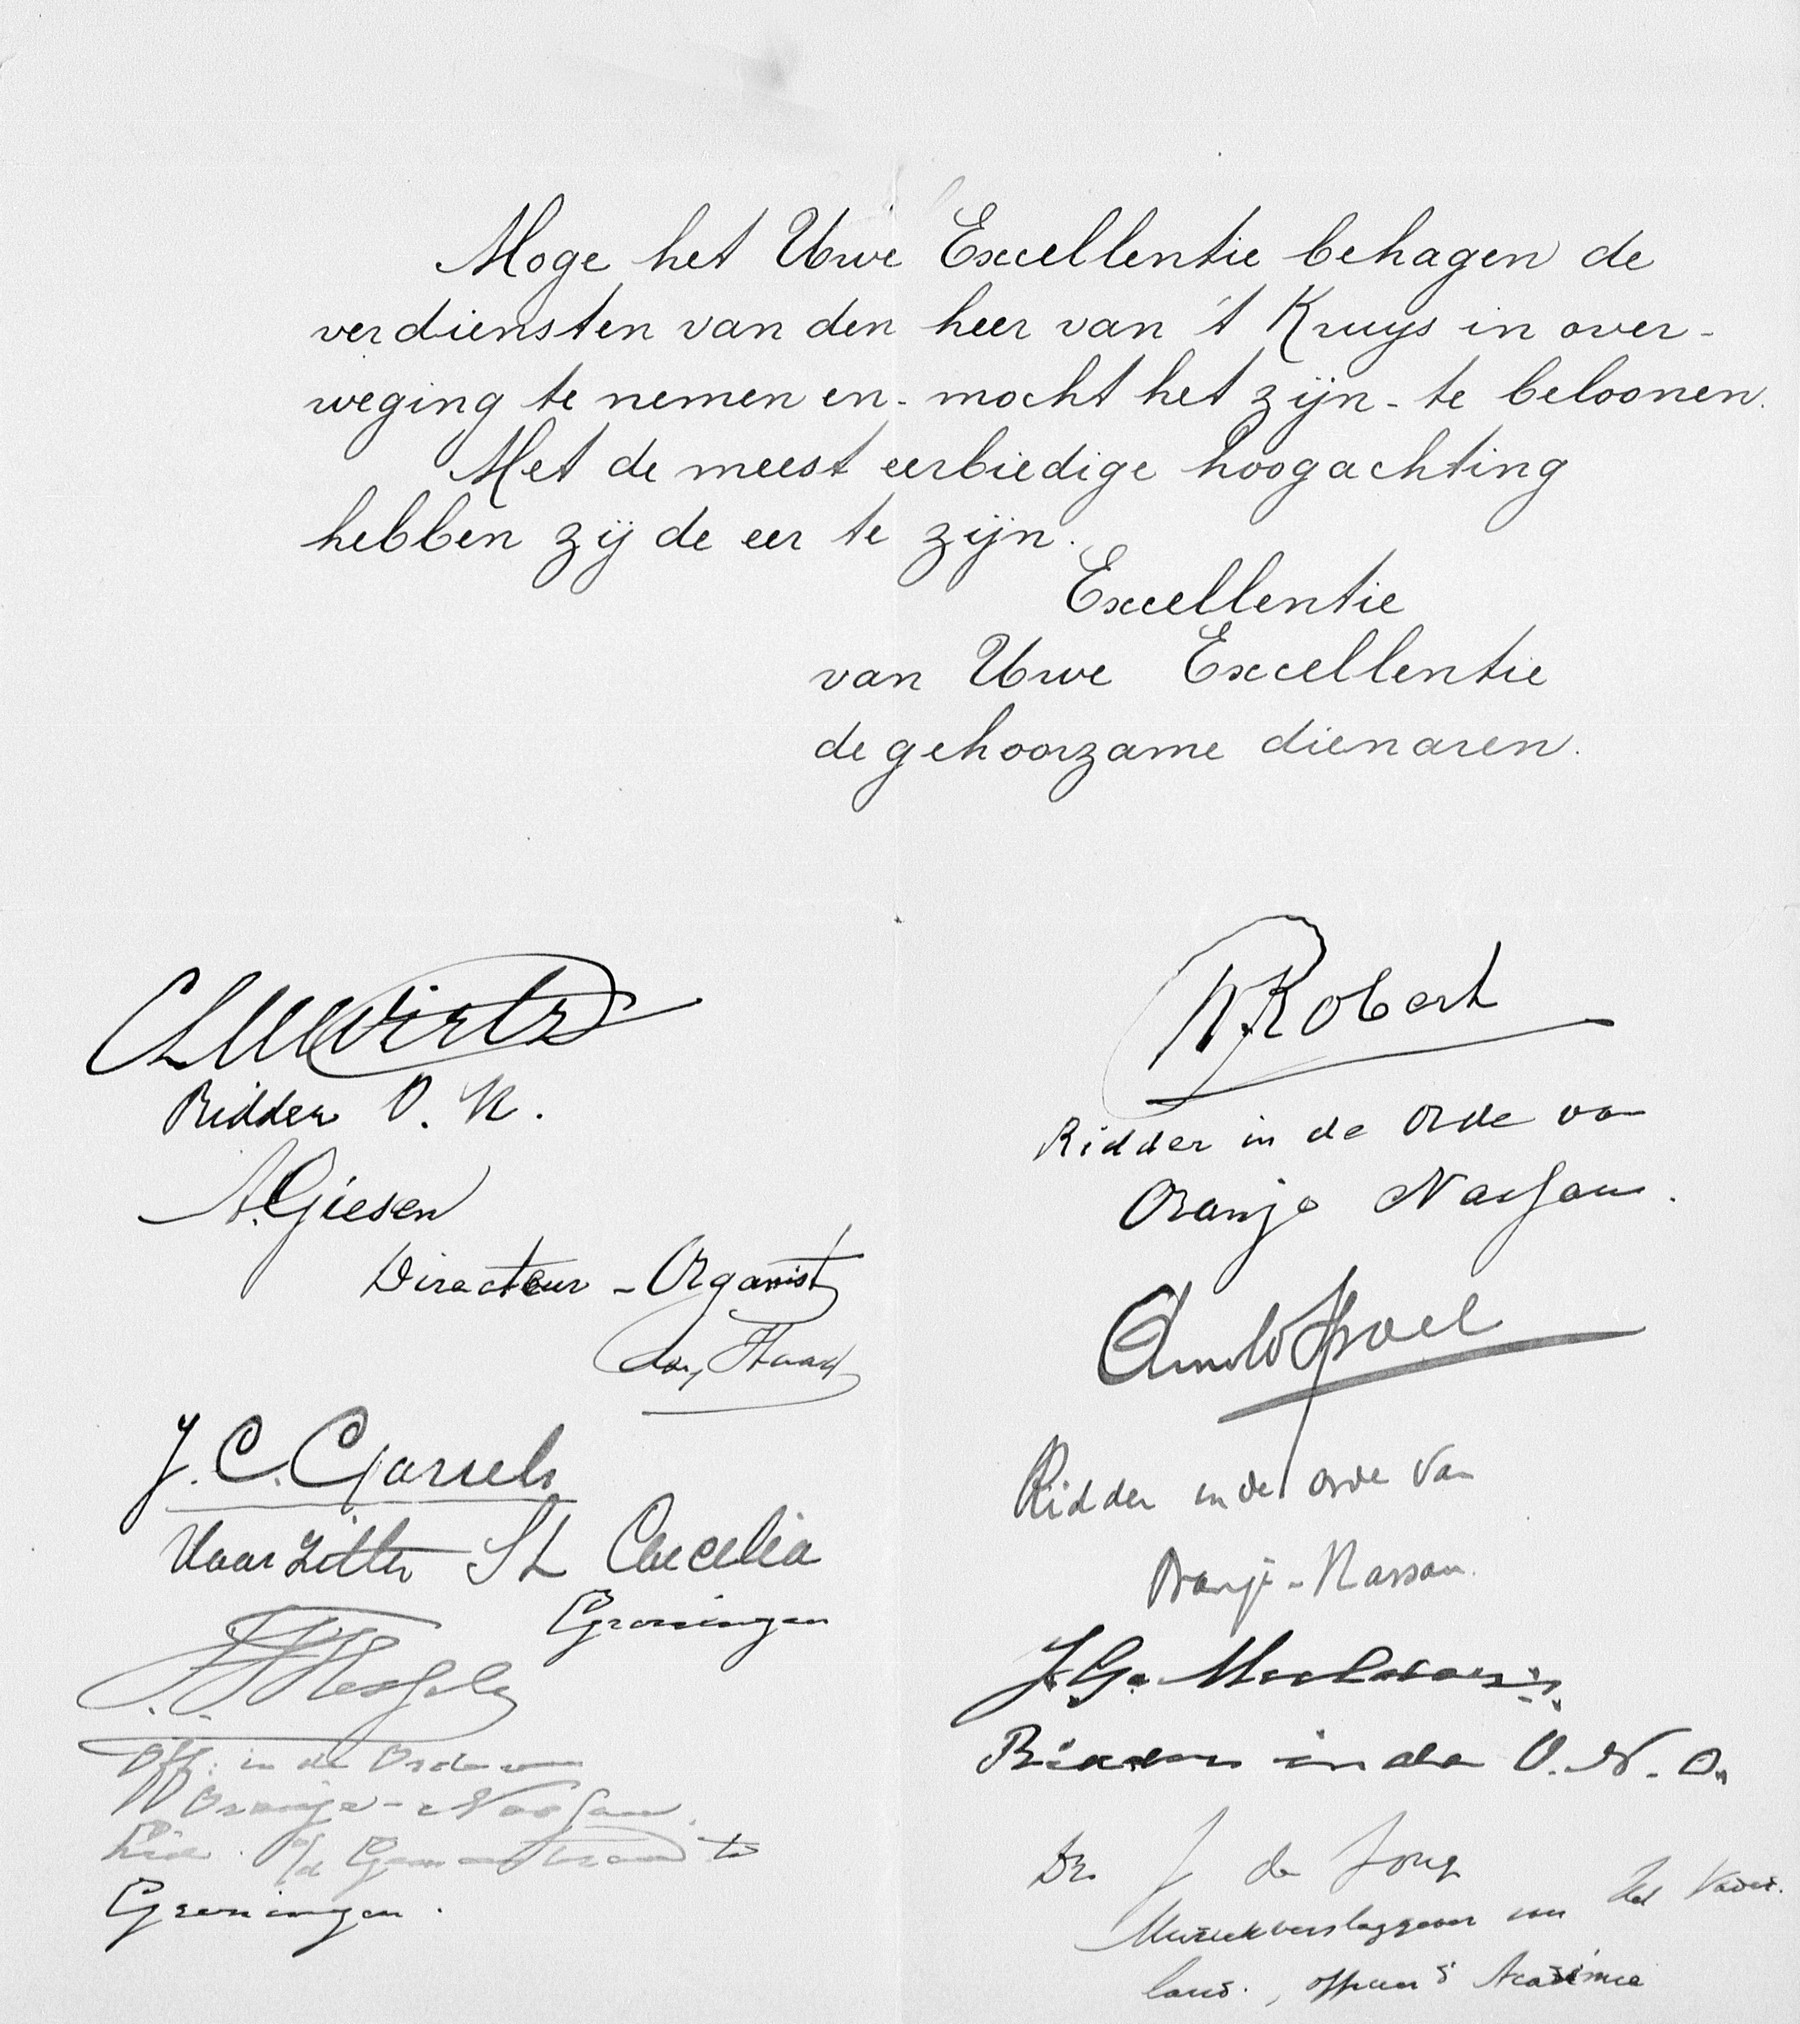 Moge het Uwe Excellentie behagen de
verdiensten van den heer van 't Kruys in over-
weging te nemen en - mocht het zijn - te beloonen.
Met de meest eerbiedige hoogachting
hebben zij de eer te zijn.
Excellentie
van Uwe Excellentie
de gehoorzame dienaren.
Wirtz
Ridder O. N.
A. Giesen
Directeur - Organist
den Haag
J. C. 
Voorzitter St Caecilia
Groningen
Off. in de Orde v
Oranje-Nassau.
Lid v/d Gemeenteraad te
Groningen.
W Robert
Ridder in de Orde van
Oranje Nassau.
Arnold Spoel
Ridder in de Orde van
Oranje-Nassau.
J. G.
Ridder in de O. N. O.
Dr. J de Jong
Muziekverslaggever van Het Vader-
land., officier d'Académie